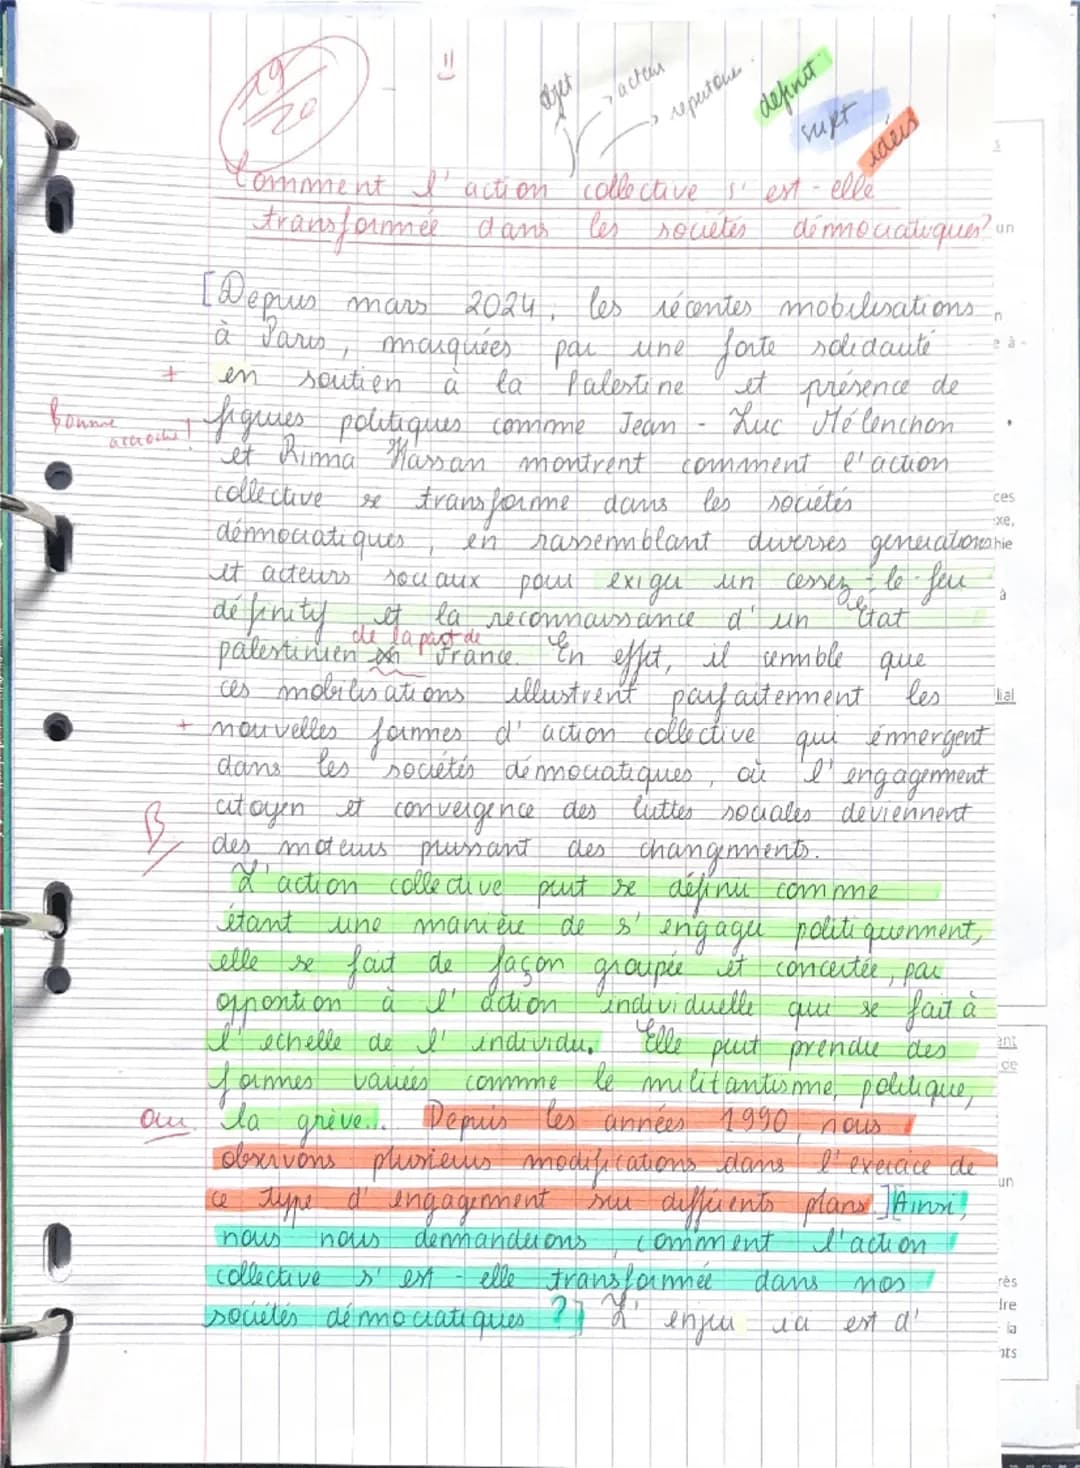 19/20
objet
→ acteurs
→ repertoires
définit°
sujet
idées
Comment l'action collective s'est-elle
transformée dans les sociétés démocratiques?
[Depuis mars 2024, les récentes mobilisations
à Paris, marquées par une forte solidarité
+ en soutien à la Palestine et présence de
Bonne accroche!
figures politiques comme Jean-Luc Mélenchon
et Rima Hassan montrent comment l'action
collective se transforme dans les sociétés
démocratiques, en rassemblant diverses generations
et acteurs sociaux pour exiger un cessez-le-feu
définity et la reconnaissance d'un Etat
de la part de
palestinien France. En effet, il semble que
ces mobilisations illustrent parfaitement les
+ nouvelles formes d'action collective qui émergent
dans les sociétés démocratiques, où l'engagement
citoyen et convergence des luttes sociales deviennent
B
des moteurs puissant des changements.
L'action collective peut se définir comme
étant une manière de s'engager politiquement,
elle se fait de façon groupée et concertée, par
opposition à l'action individuelle qui se fait à
l'echelle de l'individu. Elle peut prendre des
formes variées comme le militantisme, politique,
la grève... Depuis les années 1990, nous
observons plusieurs modifications dans l'exercice de
ce type d'engagement sur différents plans.] [Ainsi,
nous nous demanderons, comment l'action
collective s'est-elle transformée dans nos
sociétés démocratiques ?] L'enjeu ici est d'
un
ces
xe,
hie
à
lial
ent
de
un
rès
dre
la
nts